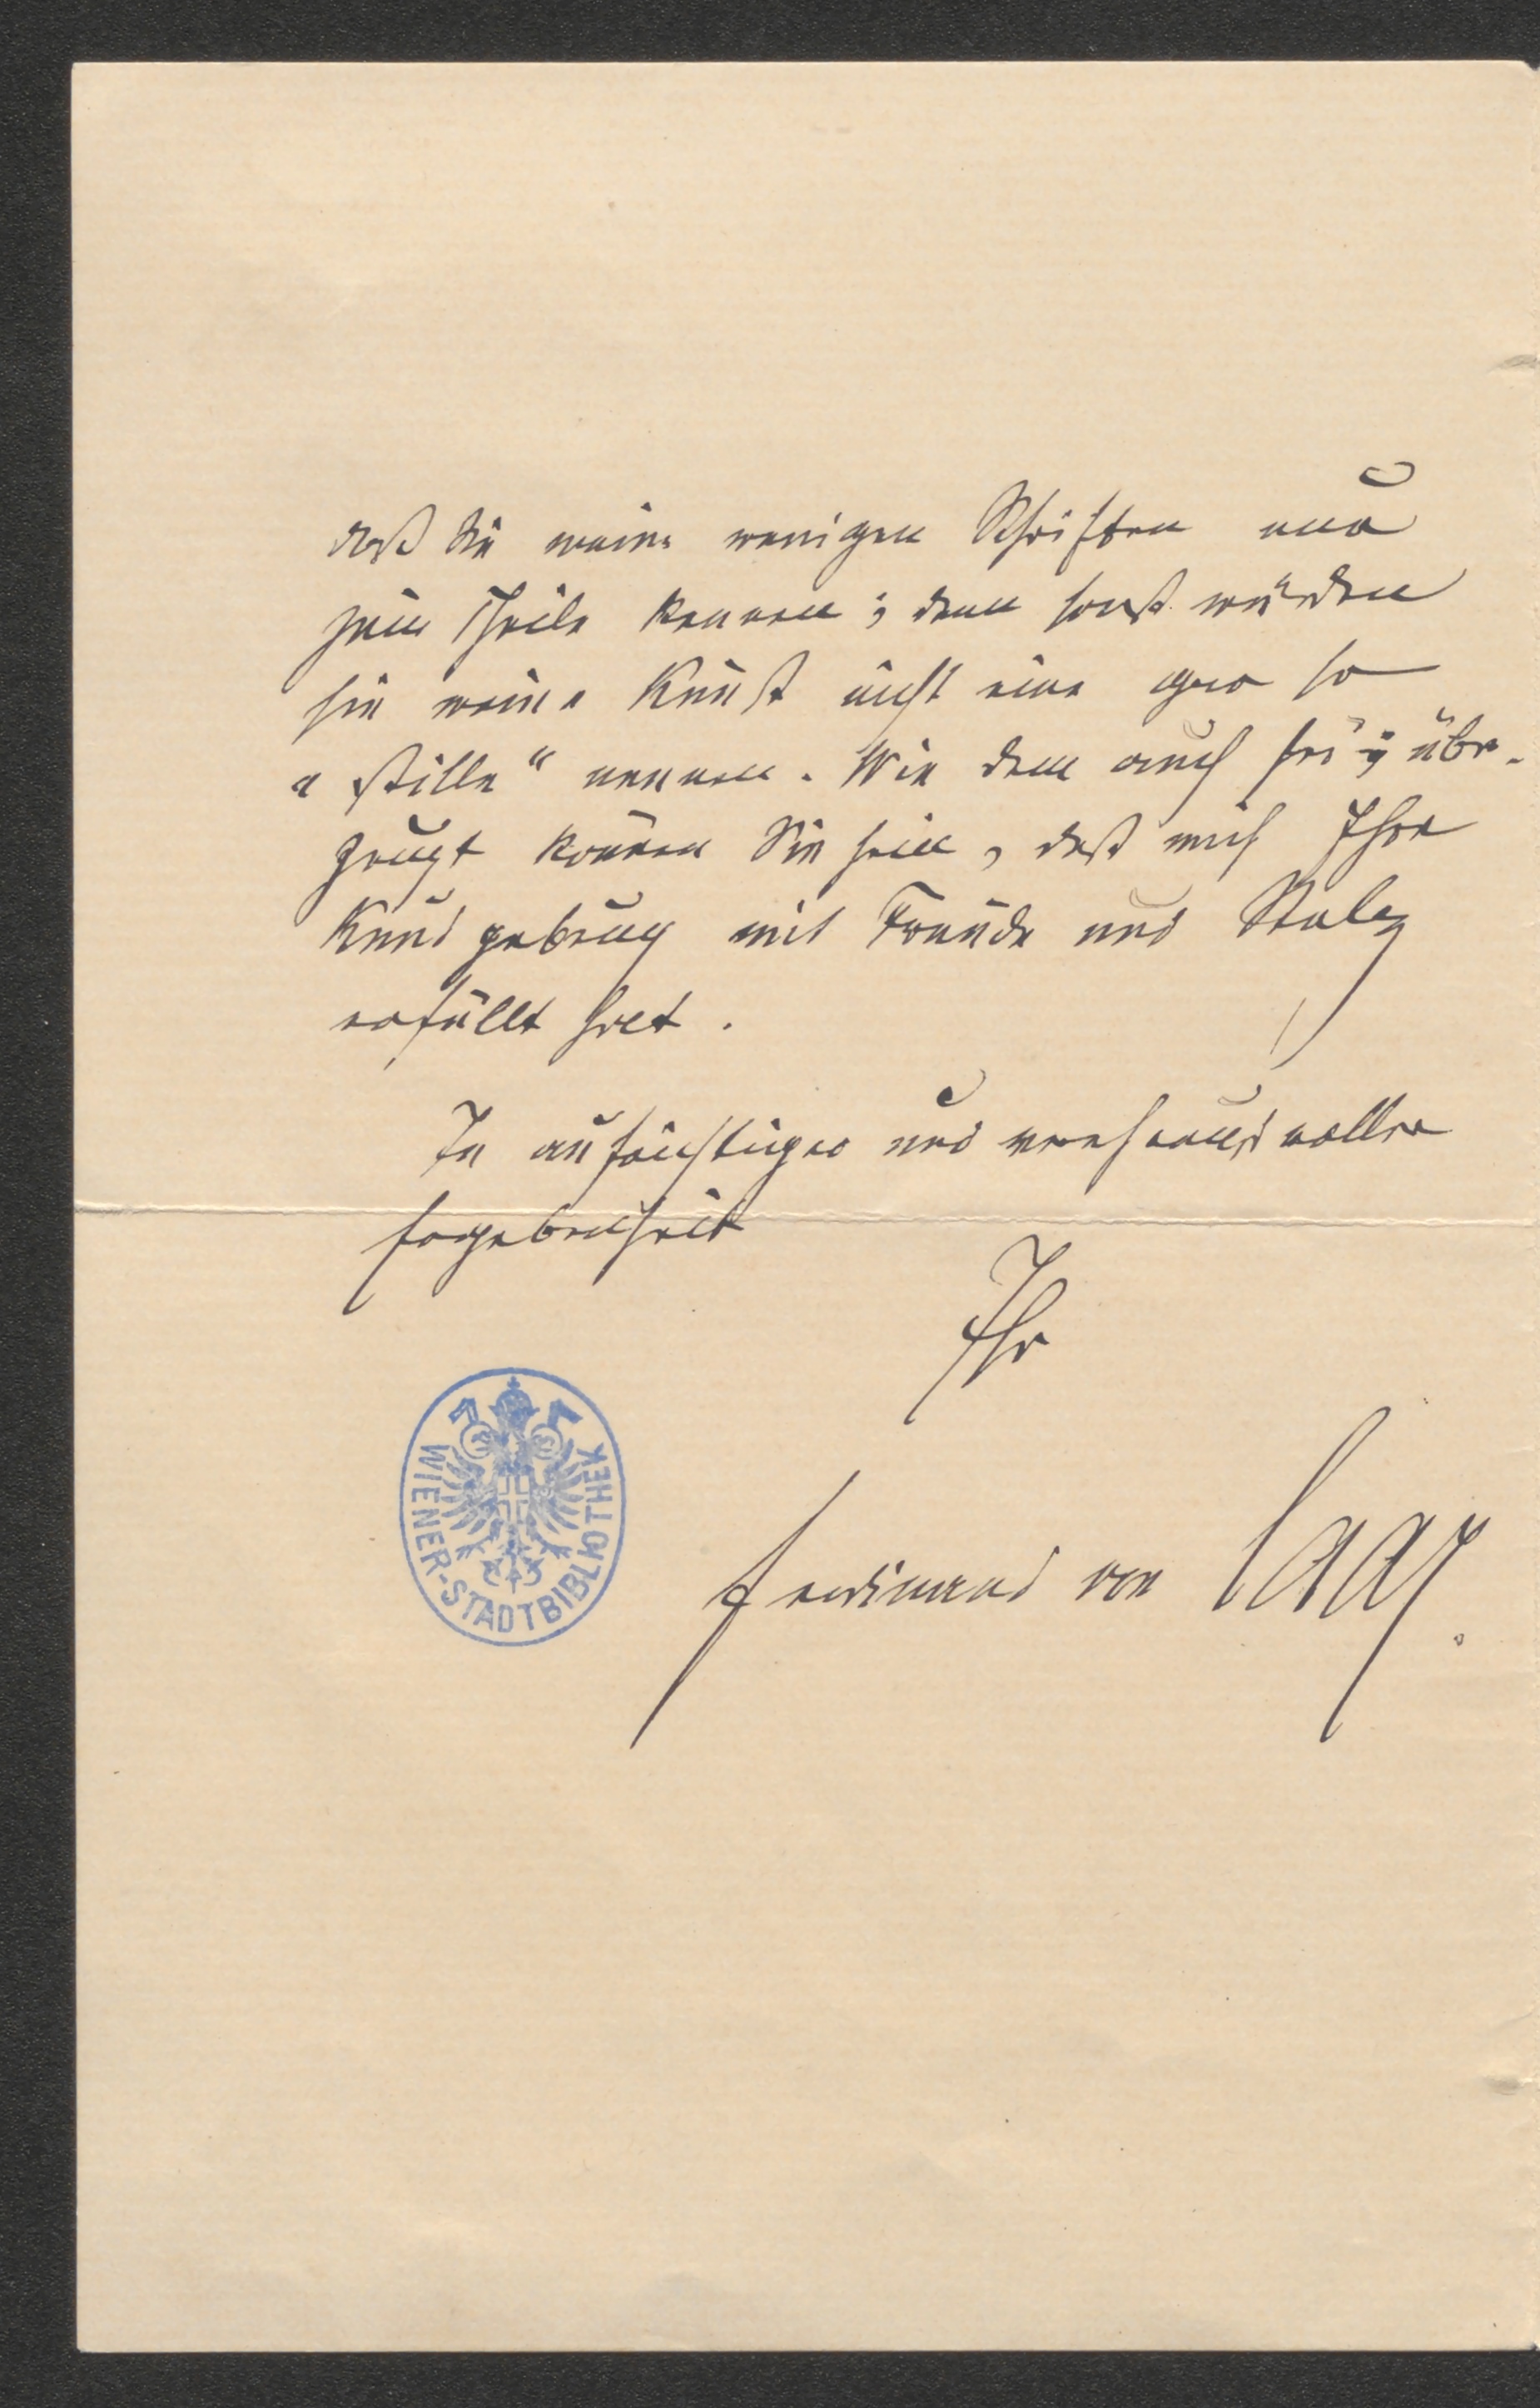 daß Sie meine wenigen Schriften nur
zum Theile kennen; denn sonst würden
sie meine Kunst nicht eine gar so
„stille“ nennen. Wie dem auch sei; über-
zeugt können Sie sein, daß mich Ihre
Kundgebung mit Freude und Stolz
erfüllt hat.
In aufrichtiger und verehrungsvoller
Ergebenheit
Ihr
Ferdinand von Saar.
WIENER-STADTBIBLIOTHEK